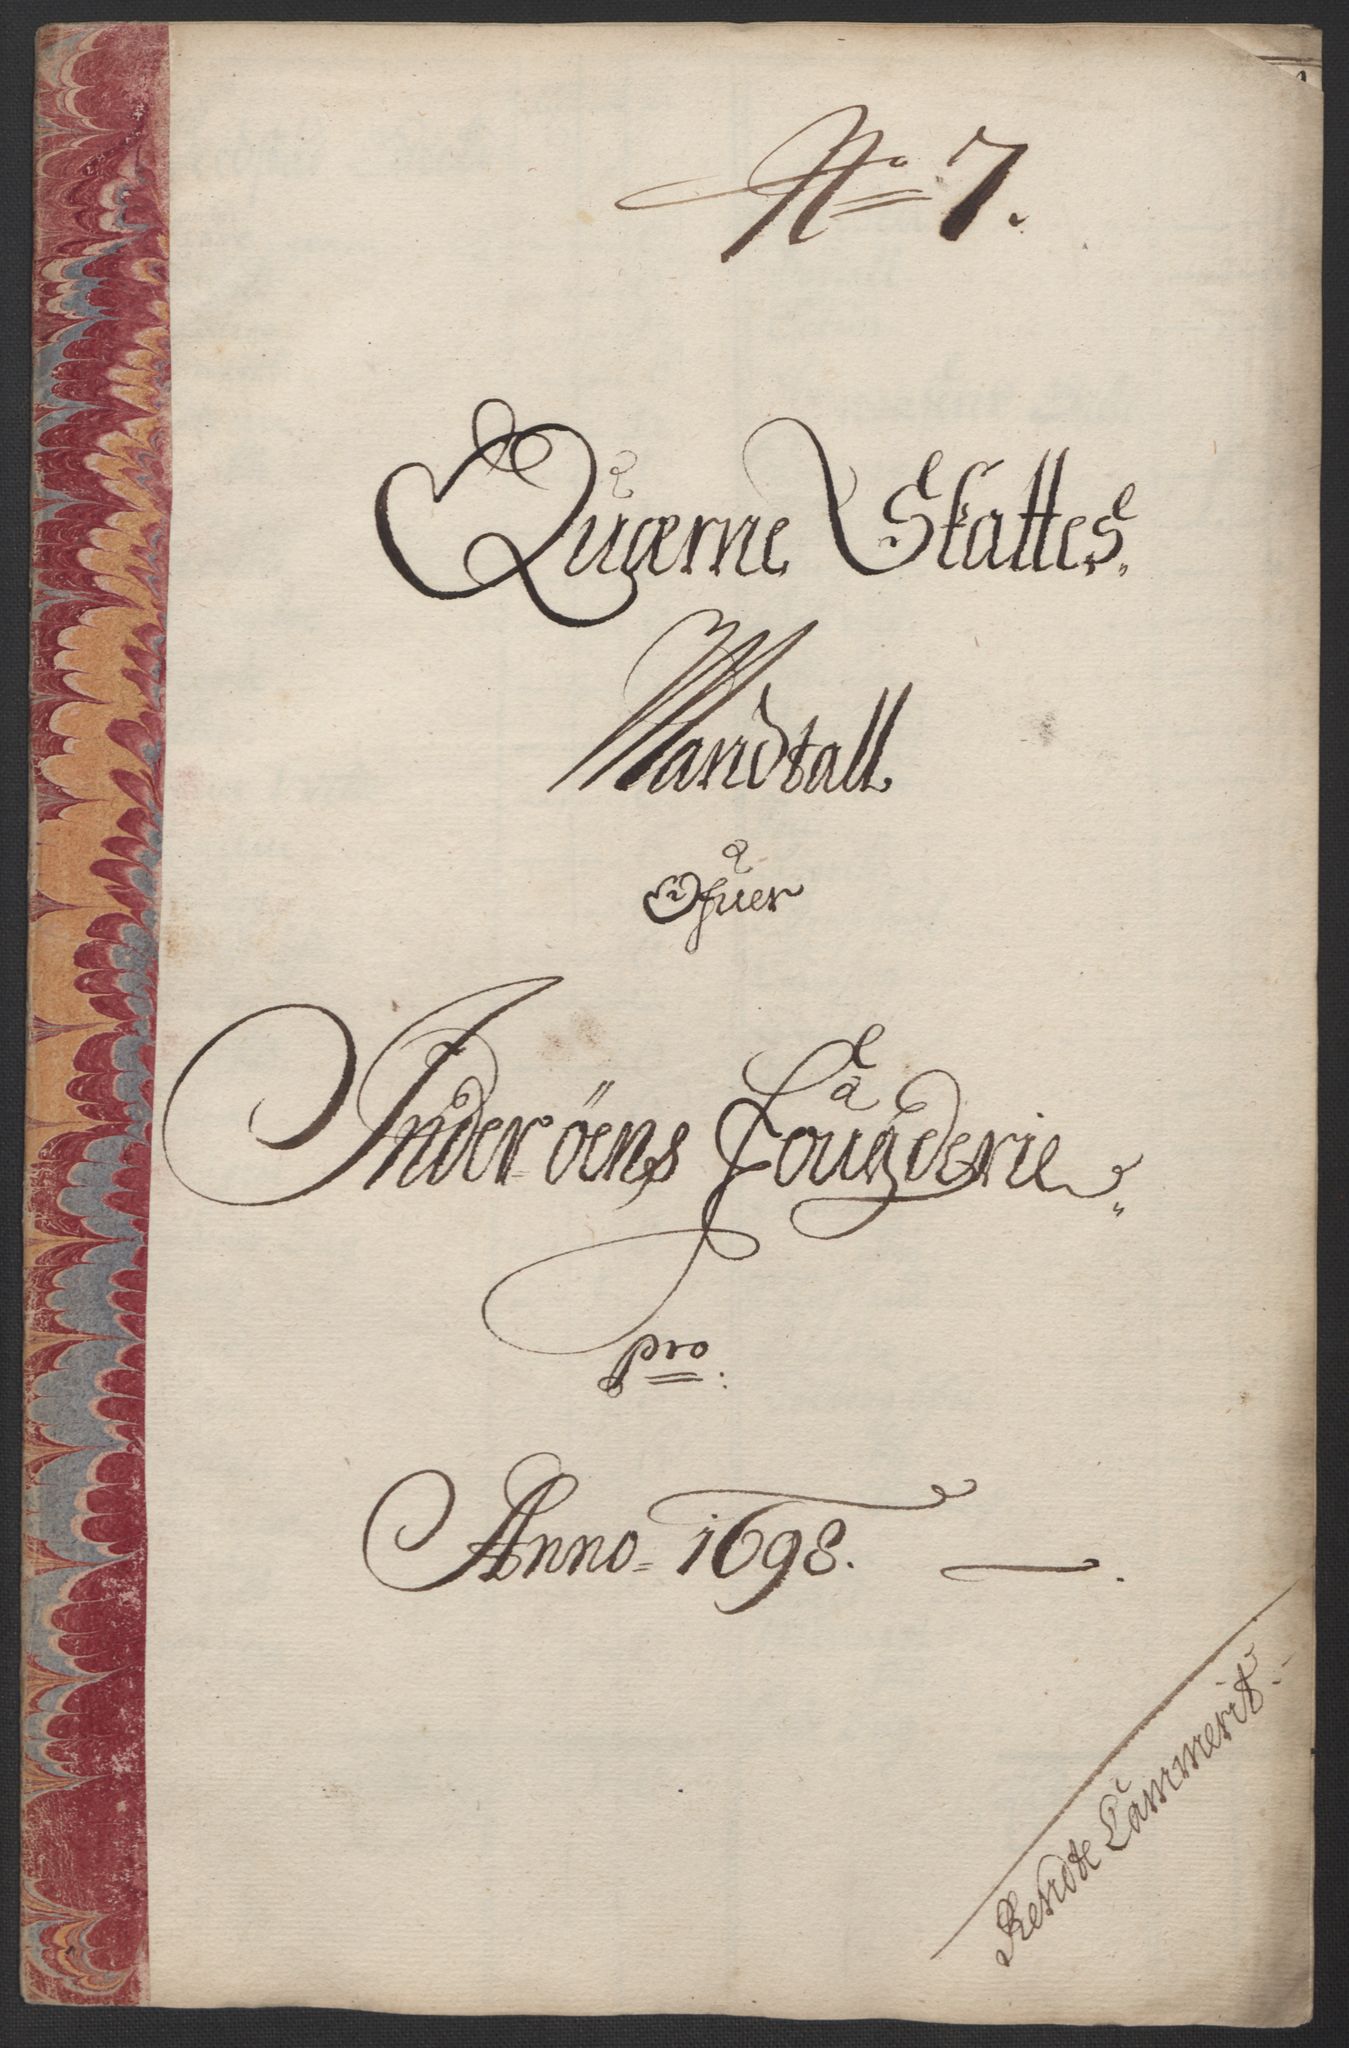 No 7.
Quærne Skattes
Mandtall
Ofuer
Inderöens Fougderie
pro:
Anno 1698.
Rendte Cammerit